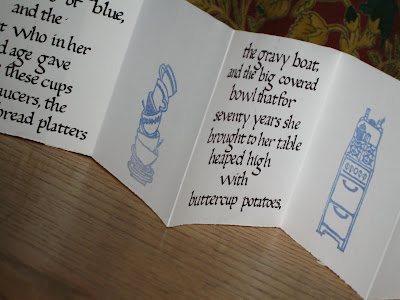 of blue,
and the
t who in her
d age gave
these cups
ucers, the
bread platters
the gravy boat,
and the big covered
bowl that for
seventy years she
brought to her table
heaped high
with
buttercup potatoes,